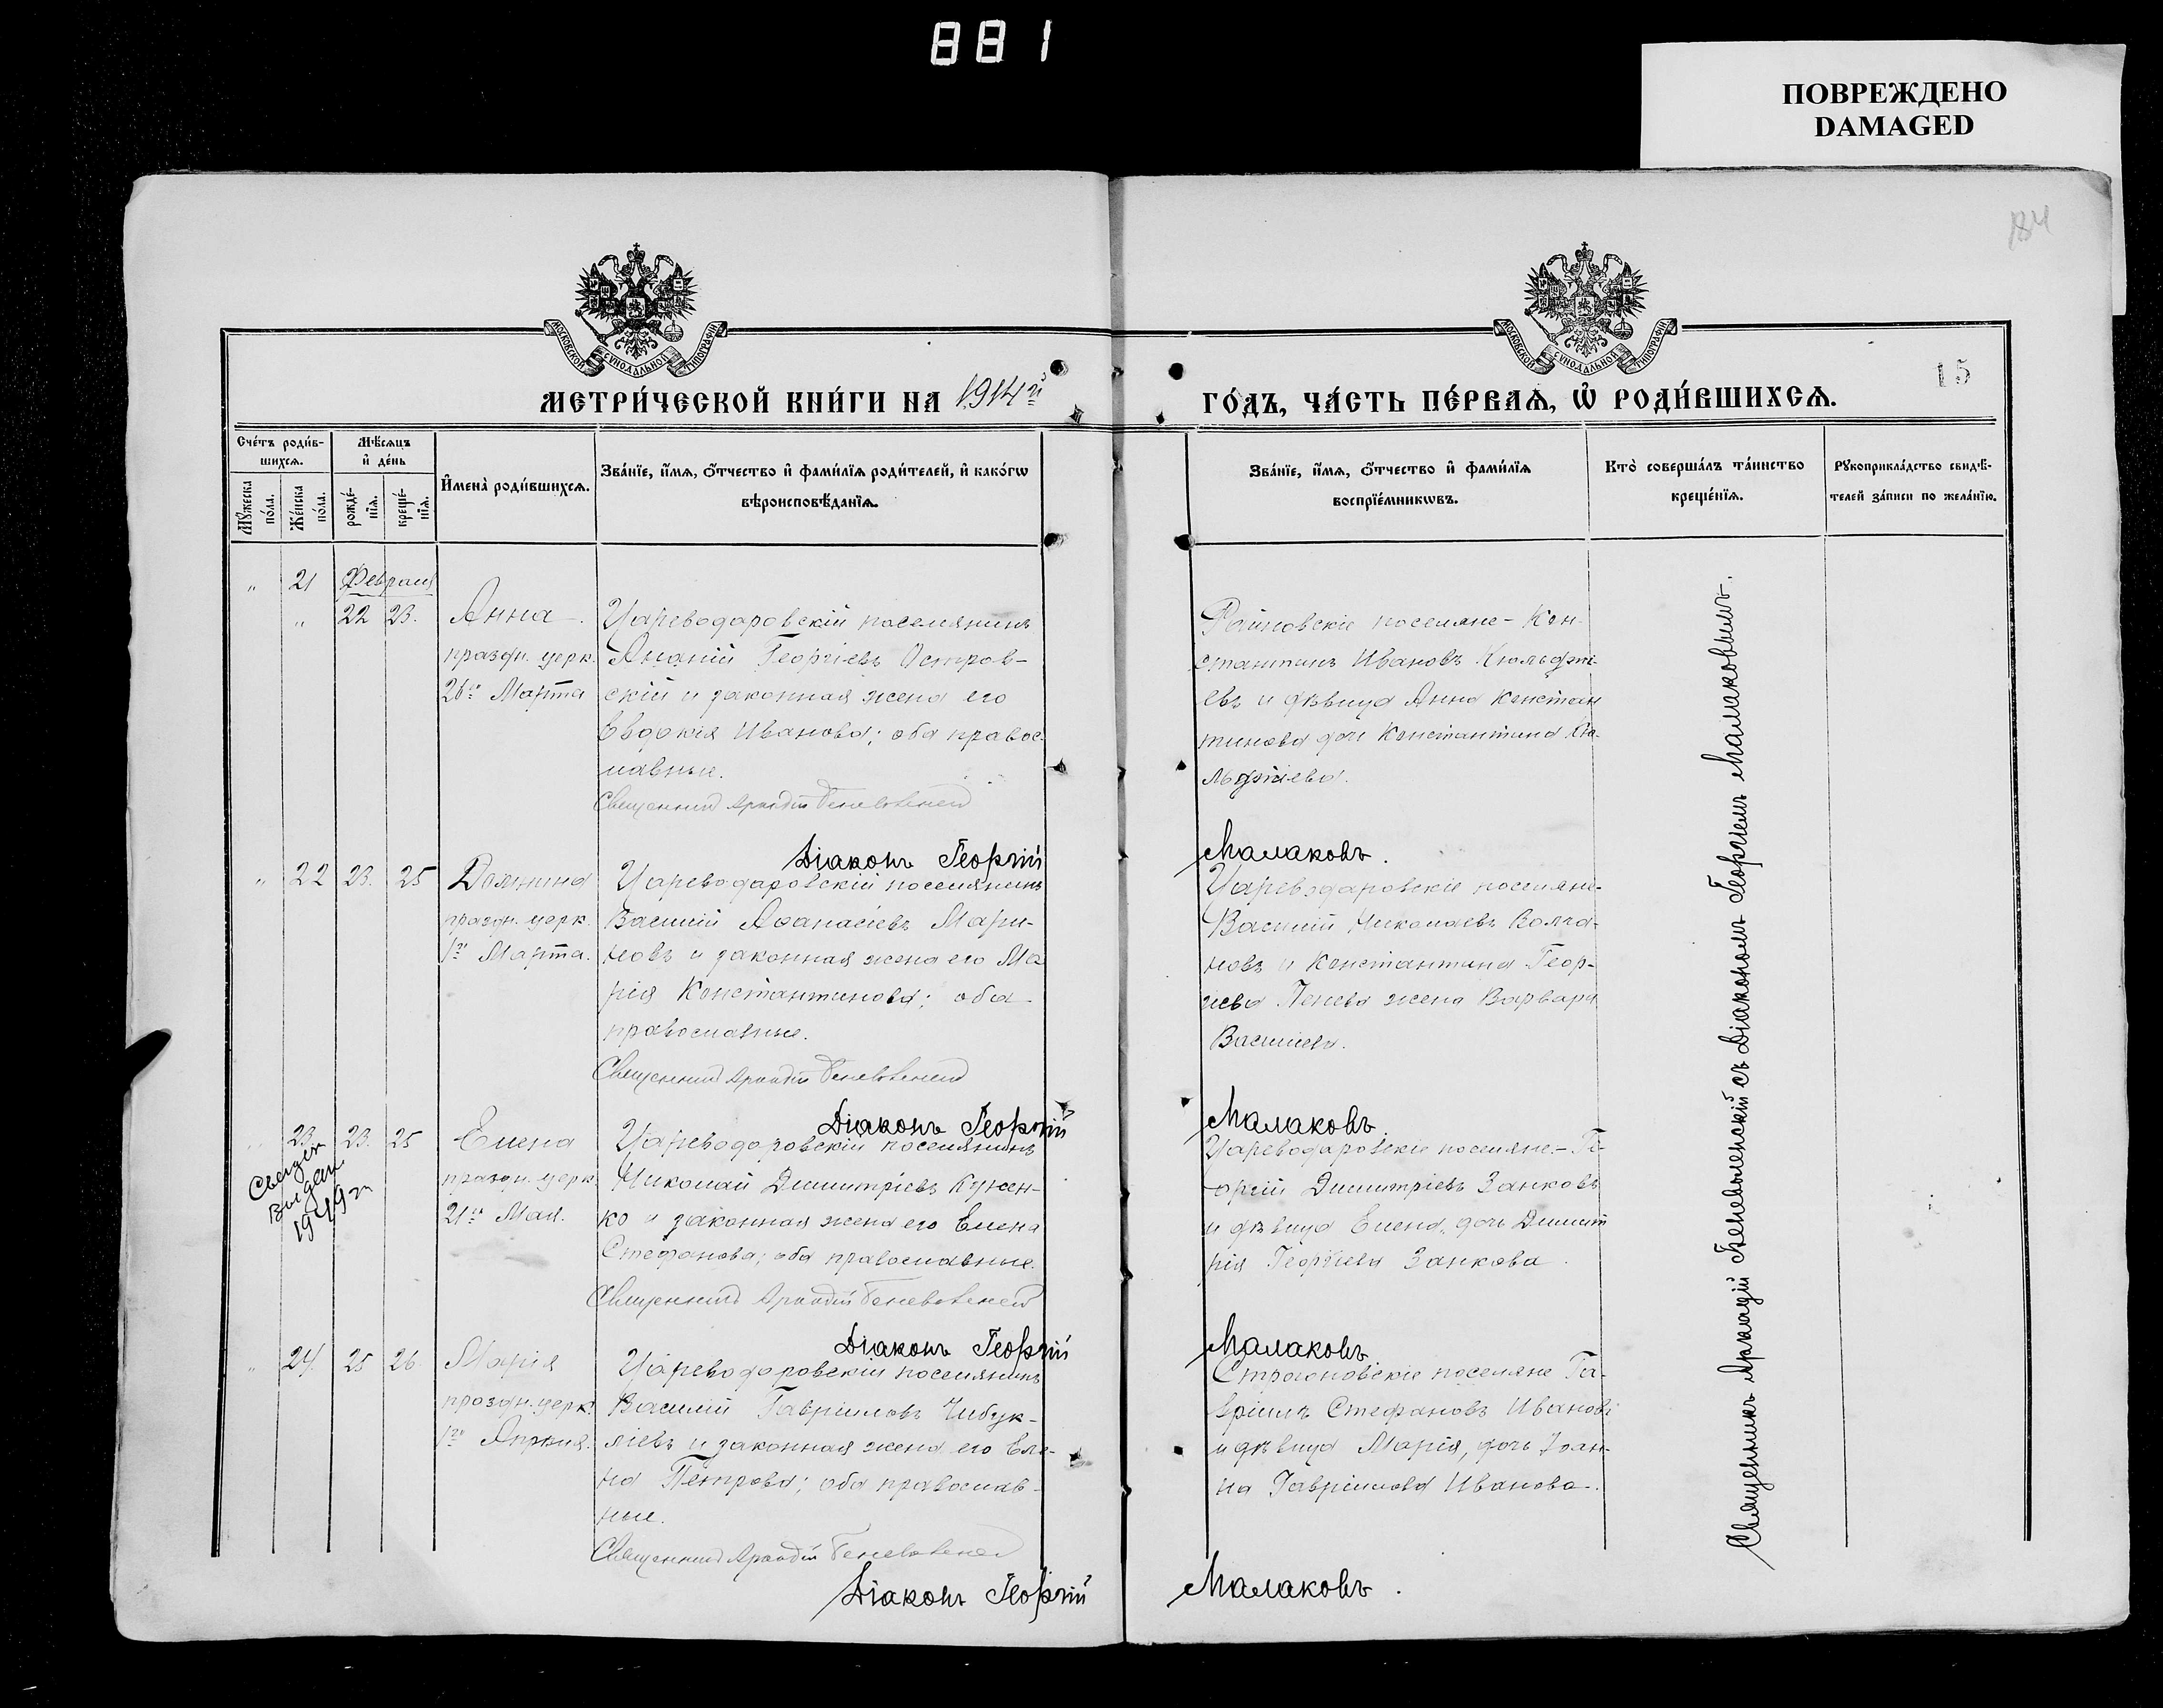 881
ПОВРЕЖДЕНО
DAMAGED
184
МОСКОВСКОЙ СѴНОДАЛЬНОЙ ТИПОГРАФІИ
МОСКОВСКОЙ СѴНОДАЛЬНОЙ ТИПОГРАФІИ
15
МЕТРИ́ЧЕСКОЙ КНИ́ГИ НА 1914й
ГО́ДЪ, ЧА́СТЬ ПЕ́РВАѦ, Ѡ҆ РОДИ́ВШИХСѦ.
Сче́тъ роди́в-
шихсѧ.
Мѣ́сѧцъ
и҆ де́нь
Мꙋ́жеска
по́ла.
Же́нска
по́ла.
рожде́-
нїѧ.
креще́-
нїѧ.
И҆мена̀ роди́вшихсѧ.
Зва́нїе, и҆́мѧ, ѻ҆́тчество и҆ фами́лїѧ роди́телей, и҆ како́гѡ
вѣроисповѣ́данїѧ.
Зва́нїе, и҆́мѧ, ѻ҆́тчество и҆ фами́лїѧ
воспрїе́мникѡвъ.
Кто̀ соверша́лъ та́инство
креще́нїѧ.
Рꙋкоприкла́дство свидѣ́-
телей за́писи по жела́нїю.
„ 21 Февраля
„ 22 23. Анна
празdн. церк.
26го Марта
Цареводаровскій поселянинъ
Ананій Георгіевъ Остров-
скій и законная жена его
Евдокія Иванова; оба правос-
лавные.
Священникъ Аркадій Беневоленскій
Діаконъ Георгій
Райновскіе поселяне - Кон-
стантинъ Ивановъ Кюльджі-
евъ и дѣвица Анна Констан
тинова дочь Константина Кю-
льджіева.
Малаковъ.
„ 22 23. 25 Домнина
праздн. церк.
1го Марта.
Цареводаровскій поселянинъ
Василій Аѳанасіевъ Мари-
новъ и законная жена его Ма
рія Константинова; оба
православные.
Священникъ Аркадій Беневоленскій
Діаконъ Георгій
Цареводаровскіе поселяне-
Василій Николаевъ Волча-
новъ и Константина Геор-
гіева Пенева жена Варвара
Василіева.
Малаковъ
23. 23. 25 Елена
праздн. церк.
21го Мая.
выдан
1949 г
Цареводаровскій поселянинъ
Николай Димитріевъ Кужен-
ко и законная жена его Елена
Стефанова; оба православные.
Священникъ Аркадій Беневоленскій
Діаконъ Георгій
Цареводаровскіе поселяне - Ге-
оргій Димитріевъ Занковъ
и дѣвица Елена, дочь Димит
рія Георгіева Занкова.
Малаковъ
„ 24. 25 26. Марія
праздн. церк.
1го Апрѣля.
Цареводаровскій поселянинъ
Василій Гавріиловъ Чибук-
ліевъ и законная жена его Еле-
на Петрова; оба православ-
ные.
Священникъ Аркадій Беневоленскій
Діаконъ Георгій
Строгоновскіе поселяне Га-
вріилъ Стефановъ Ивановъ
и дѣвица Марія, дочь Іоан-
на Гавріилова Иванова.
Малаковъ.
Священникъ Аркадій Беневоленскій съ Діакономъ Георгіемъ Малаковымъ.